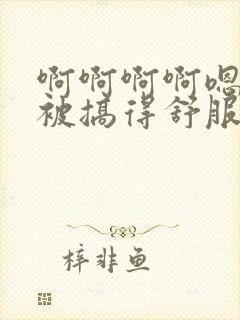 啊啊啊啊嗯
被搞得舒服
梓非鱼